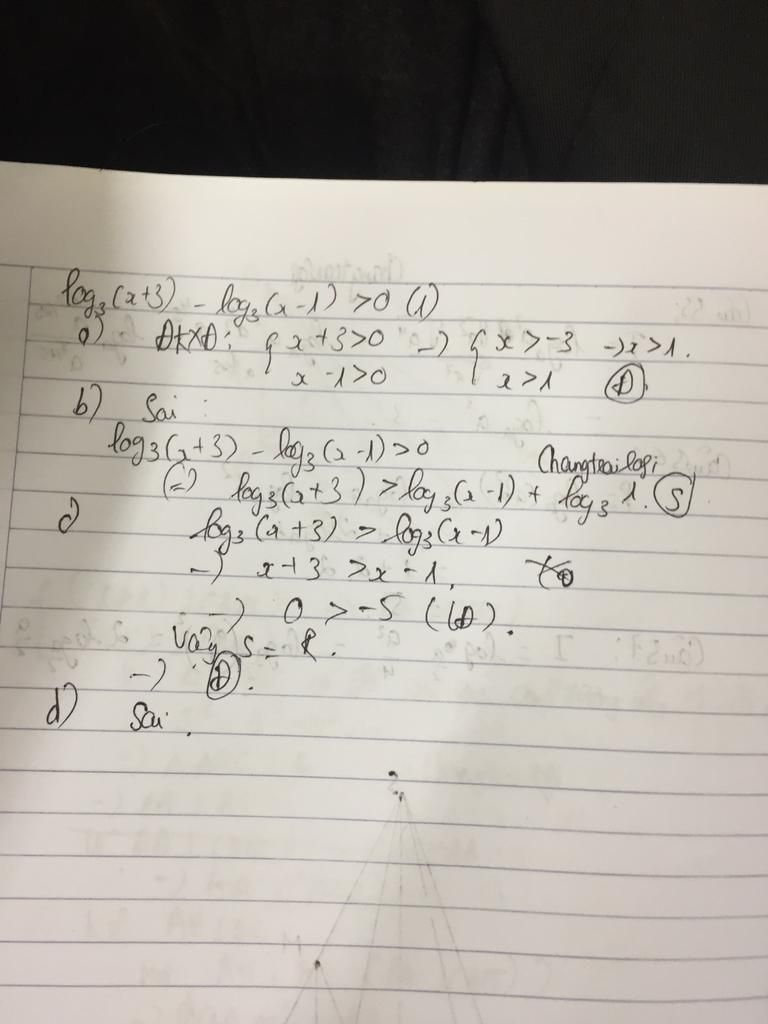 log₃(x+3) - log₃(x-1) >0 (1)
a) ĐKXĐ: { x+3>0 → { x>-3 → x>1.
x-1>0 x>1 Đ
b) Sai :
log₃(x+3) - log₃(x-1) >0
(=) log₃(x+3) > log₃(x-1) + log₃ 1. S
c) log₃(x+3) > log₃(x-1)
→ x+3 >x-1.
→ 0 > -5 (LĐ).
Vậy S = R.
→ Đ.
d) Sai.